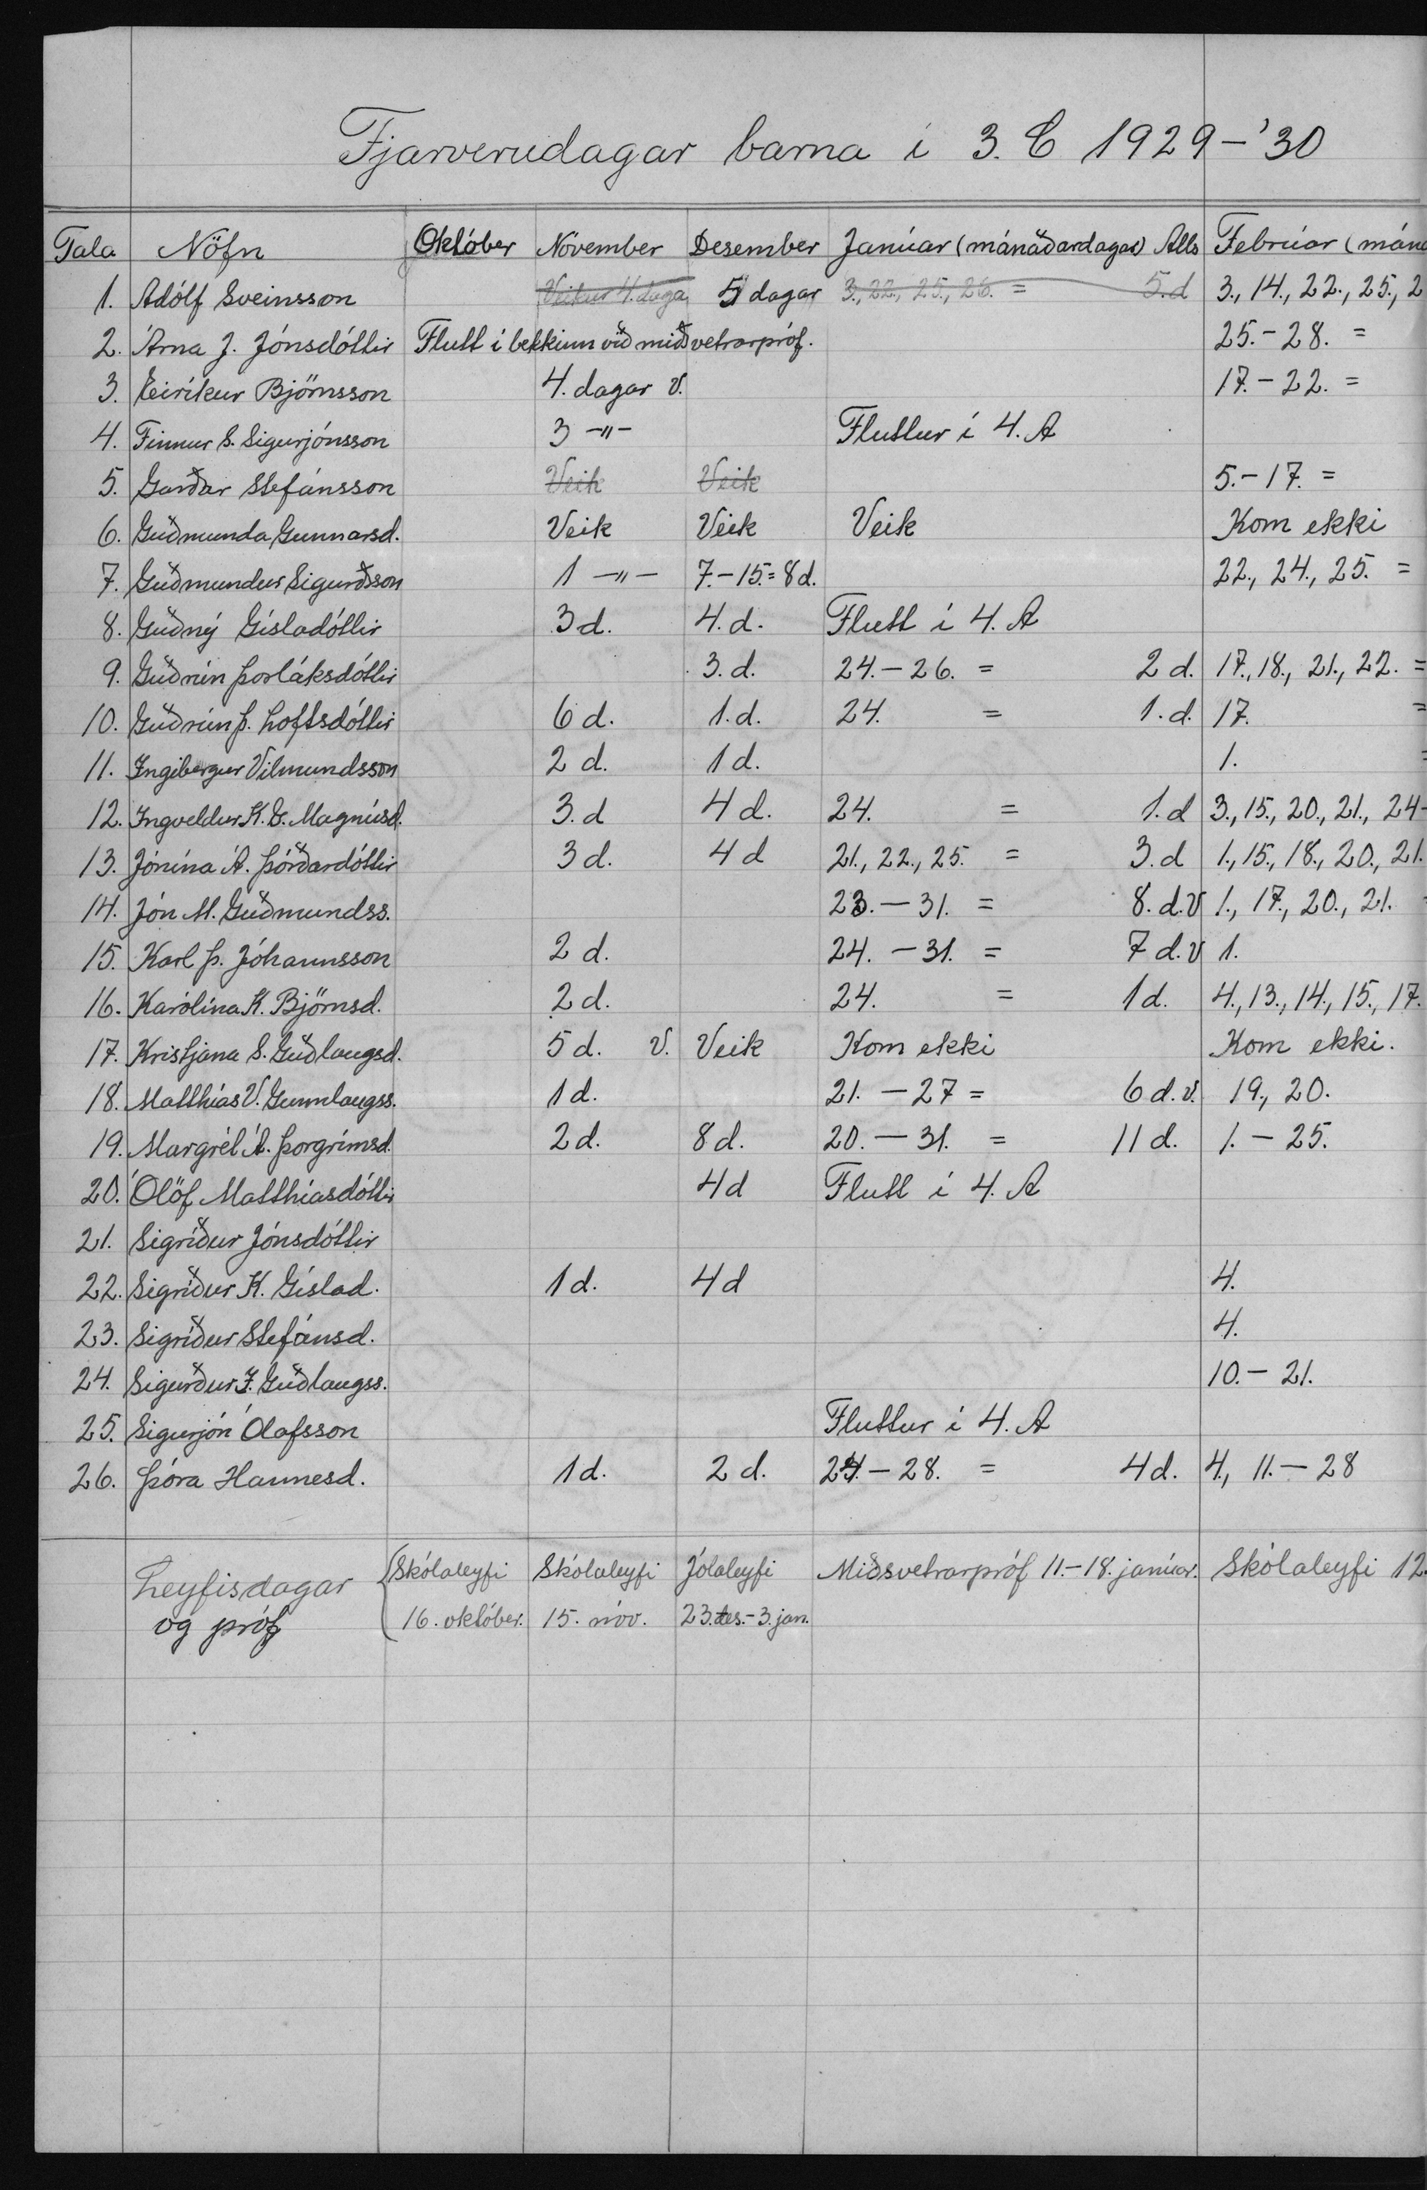 Fjarverudagar barna í 3. C 1929-'30
Tala Nöfn Október Nóvember Desember Janúar (mánaðardagar) Alls Febrúar (mána
1. Adólf Sveinsson Veikur 4. daga 5 dagar 3., 22., 25., 26. = 5.d 3., 14., 22., 25., 2
2. Árna J. Jónsdóttir Flutt í bekkinn við miðsvetrarpróf. 25.-28. =
3. Eiríkur Björnsson 4. dagar v. 17.-22. =
4. Finnur S. Sigurjónsson 3 -"- Fluttur í 4. A
5. Garðar Stefánsson Veik Veik 5.-17. =
6. Guðmunda Gunnarsd. Veik Veik Veik Kom ekki
7. Guðmundur Sigurðsson 1 -"- 7.-15.=8d. 22., 24., 25. =
8. Guðný Gísladóttir 3d. 4.d. Flutt í 4. A
9. Guðrún Þorláksdóttir 3.d. 24.-26. = 2 d. 17., 18., 21., 22. =
10. Guðrún Þ. Loftsdóttir 6 d. 1.d. 24. = 1.d. 17. =
11. Ingibergur Vilmundsson 2 d. 1d. 1. =
12. Ingveldur K. Magnúsd. 3.d 4 d. 24. = 1.d 3., 15., 20., 21., 24-
13. Jónína Á. Þórðardóttir 3d. 4 d 21., 22., 25. = 3.d 1., 15., 18., 20., 21.
14. Jón M. Guðmundss. 23.-31. = 8.d.v 1., 17., 20., 21. =
15. Karl Þ. Jóhannsson 2 d. 24.-31. = 7 d.v 1.
16. Karólína K. Björnsd. 2 d. 24. = 1d. 4., 13., 14., 15., 17.
17. Kristjana S. Guðlaugsd. 5 d. v. Veik Kom ekki Kom ekki.
18. Matthías V. Gunnlaugss. 1d. 21.-27 = 6 d.v. 19., 20.
19. Margrét Á. Þorgrímsd. 2d. 8d. 20.-31. = 11 d. 1.-25.
20. Ólöf Matthíasdóttir 4d Flutt í 4. A
21. Sigríður Jónsdóttir
22. Sigríður K. Gíslad. 1d. 4d 4.
23. Sigríður Stefánsd. 4.
24. Sigurður J. Guðlaugss. 10.-21.
25. Sigurjón Ólafsson Fluttur í 4. A
26. Þóra Hannesd. 1d. 2 d. 24.-28. = 4d. 4., 11.-28
Leyfisdagar Skólaleyfi Skólaleyfi Jólaleyfi Miðsvetrarpróf 11.-18. janúar. Skólaleyfi 12.
og próf 16. október. 15. nóv. 23. des.-3. jan.